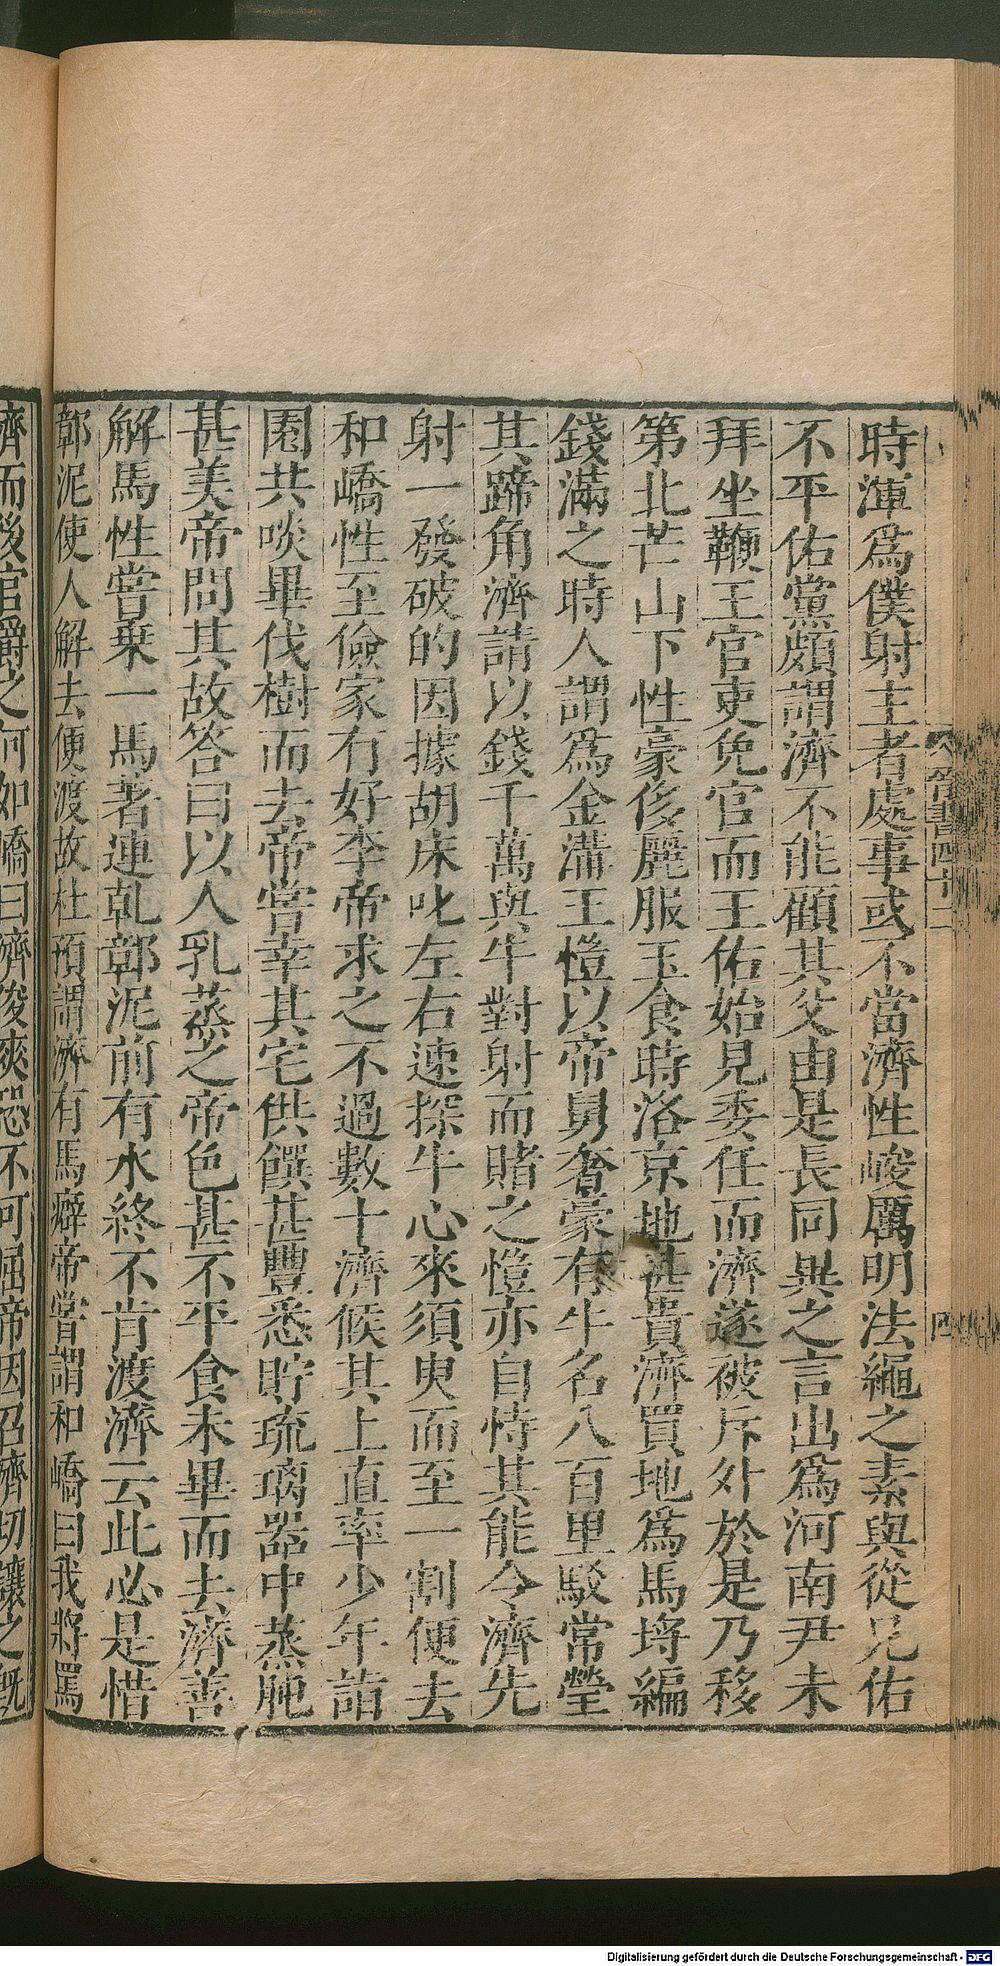 時渾爲僕射主者處事或不當濟性峻厲明法繩之素與從兄佑
不平佑黨頗謂濟不能顧其父由是長同異之言出爲河南尹未
拜坐鞭王官吏免官而王佑始見委任而濟遂被斥外於是乃移
第北芒山下性豪侈麗服玉食時洛京地甚貴濟買地爲馬埒編
錢滿之時人謂爲金溝王愷以帝舅奢豪有牛名八百里駮常瑩
其蹄角濟請以錢千萬與牛對射而賭之愷亦自恃其能令濟先
射一發破的因據胡床叱左右速探牛心來須臾而至一割便去
和嶠性至儉家有好李帝求之不過數十濟候其上直率少年詣
園共啖畢伐樹而去帝嘗幸其宅供饌甚豐悉貯琉璃器中蒸肫
甚美帝問其故答曰以人乳蒸之帝色甚不平食未畢而去濟善
解馬性嘗乗一馬著連乹鄣泥前有水終不肯渡濟云此必是惜
鄣泥使人解去便渡故杜預謂濟有馬癖帝嘗謂和嶠曰我將罵
濟而後官爵之何如嶠曰濟俊爽恐不可屈帝因召濟切讓之旣
晉書四十二
四
Digitalisierung gefördert durch die Deutsche Forschungsgemeinschaft - DFG